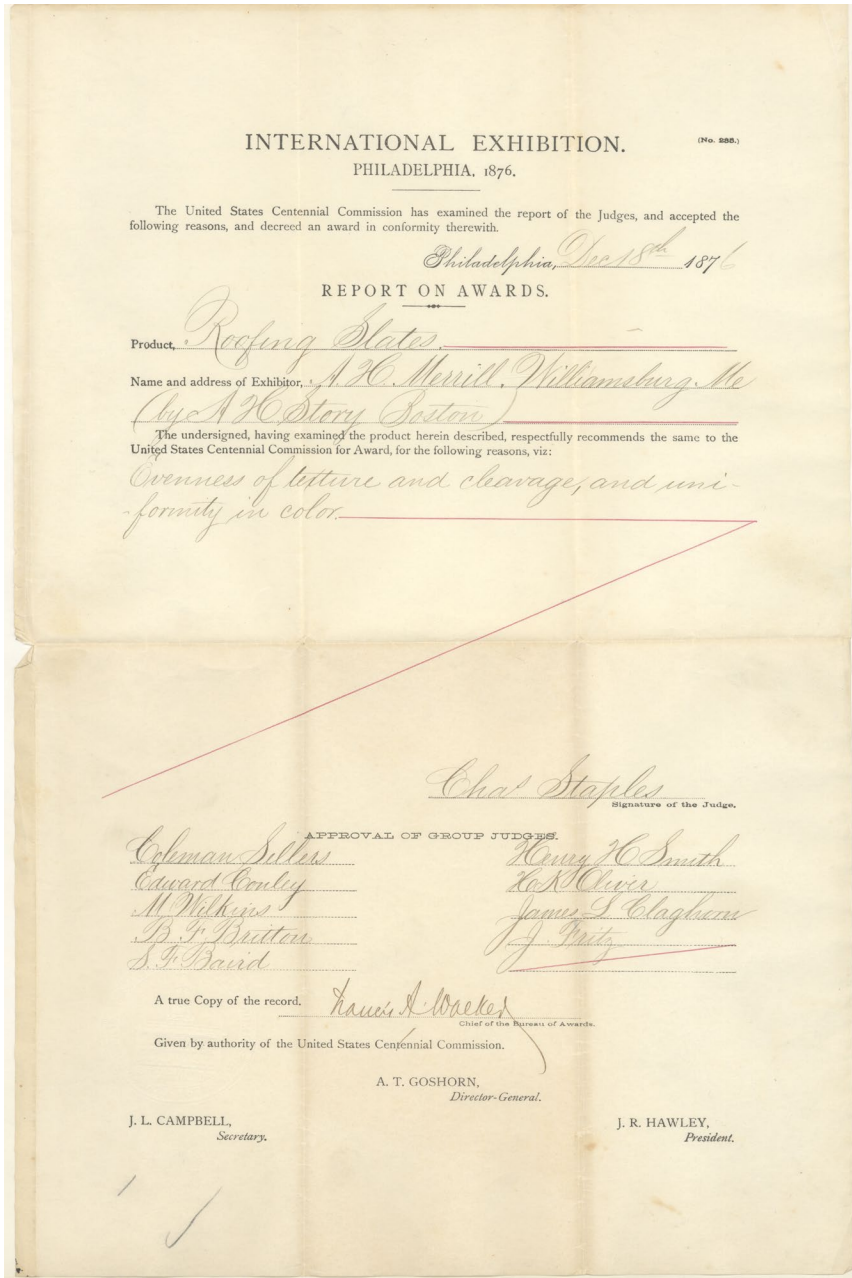 INTERNATIONAL EXHIBITION.
(No. 235.)
PHILADELPHIA, 1876.
The United States Centennial Commission has examined the report of the Judges, and accepted the
following reasons, and decreed an award in conformity therewith.
Philadelphia, Dec 18th 1876
REPORT ON AWARDS.
Product, Roofing Slates.
Name and address of Exhibitor, A. H. Merrill, Williamsburg, Me
(by A H Story Boston)
The undersigned, having examined the product herein described, respectfully recommends the same to the
United States Centennial Commission for Award, for the following reasons, viz:
Evenness of texture and cleavage, and uni-
-formity in color.
Chas Staples
Signature of the Judge.
APPROVAL OF GROUP JUDGES.
Coleman Sellers Henry H Smith
Edward Conley H K Oliver
M. Wilkins James L Claghorn
B. F. Britton J Fritz
S. F. Baird
A true Copy of the record. Francis A. Walker
Chief of the Bureau of Awards.
Given by authority of the United States Centennial Commission.
A. T. GOSHORN,
Director-General.
J. L. CAMPBELL, J. R. HAWLEY,
Secretary. President.